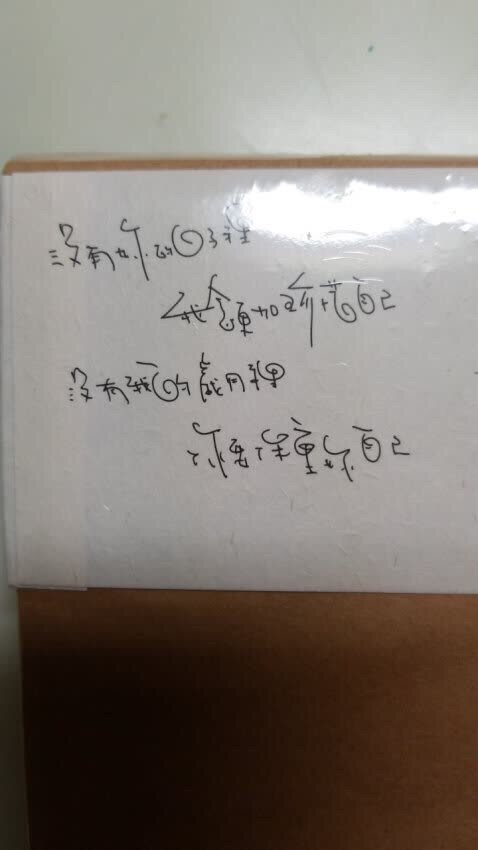 沒有妳的日子裡
我會更加珍惜自己
沒有我的歲月裡
你要保重妳自己